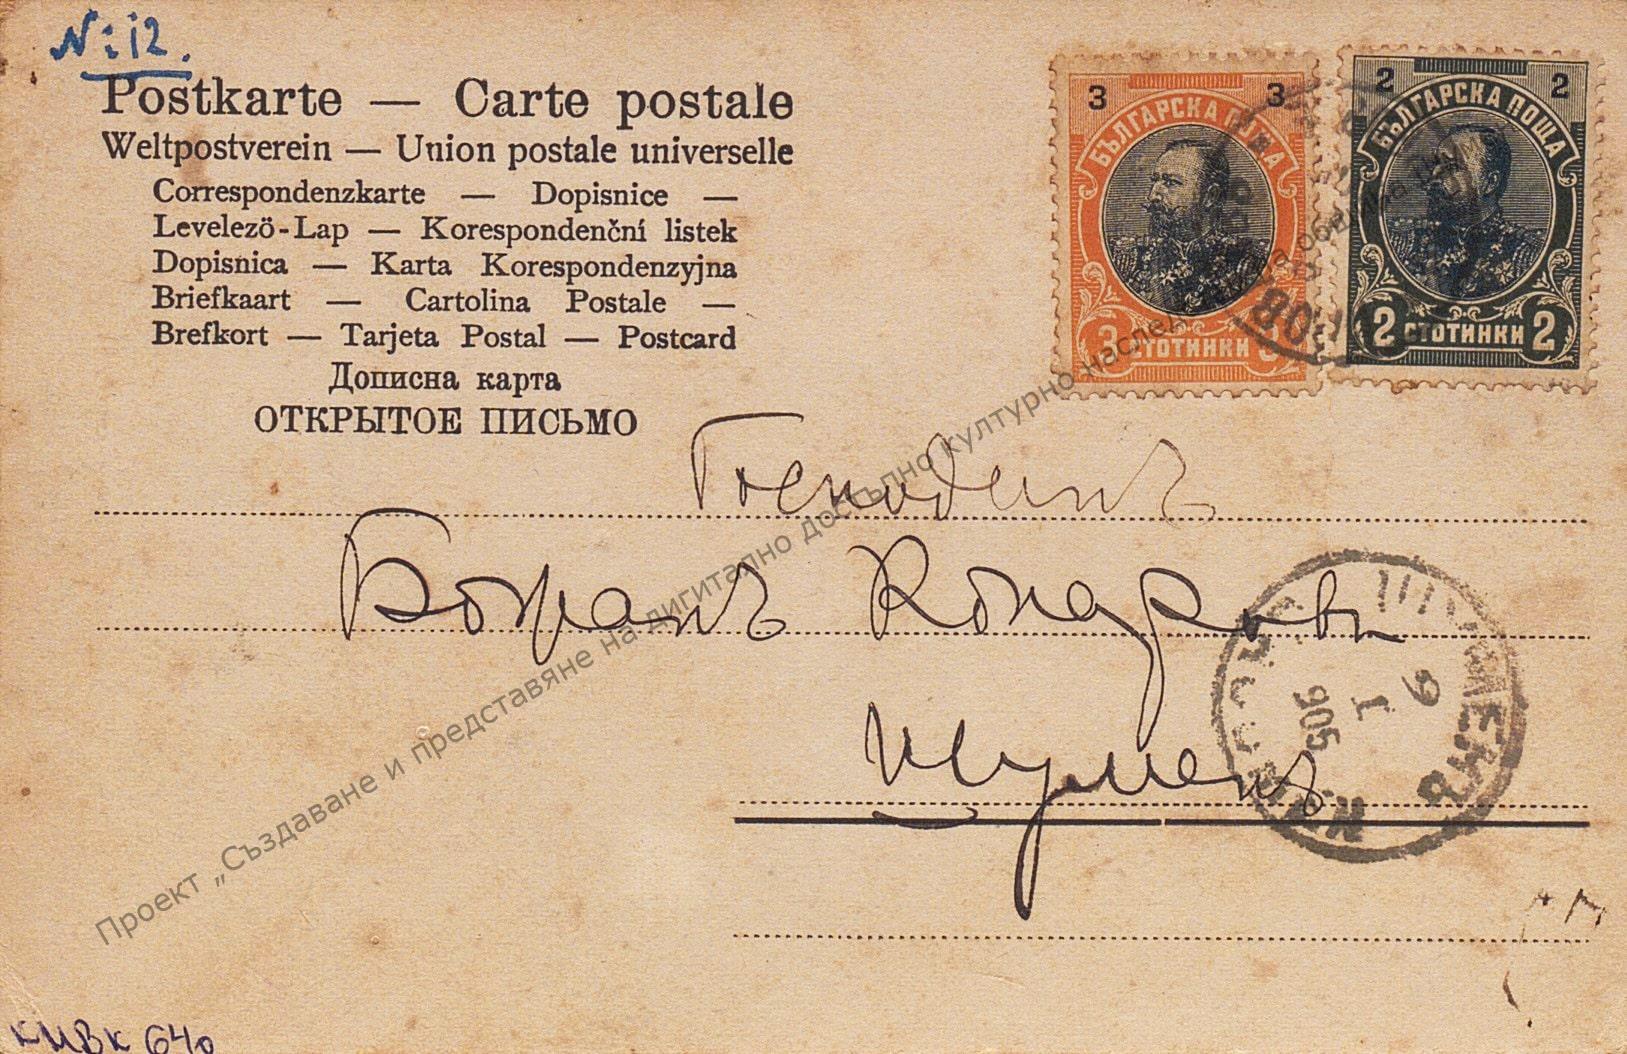 № 12.
Postkarte — Carte postale
Weltpostverein — Union postale universelle
Correspondenzkarte — Dopisnice —
Levelezö-Lap — Korespondenční listek
Dopisnica — Karta Korespondenzyjna
Briefkaart — Cartolina Postale —
Brefkort — Tarjeta Postal — Postcard
Дописна карта
ОТКРЫТОЕ ПИСЬМО
3 3
БЪЛГАРСКА ПОЩА
3 СТОТИНКИ 3
2 2
БЪЛГАРСКА ПОЩА
2 СТОТИНКИ 2
Господинъ
Божанъ
Шуменъ
ШУМЕНЪ
9 I 905
Проект „Създаване и представяне на дигитално достъпно културно наследство на община Шумен
КМВК 640